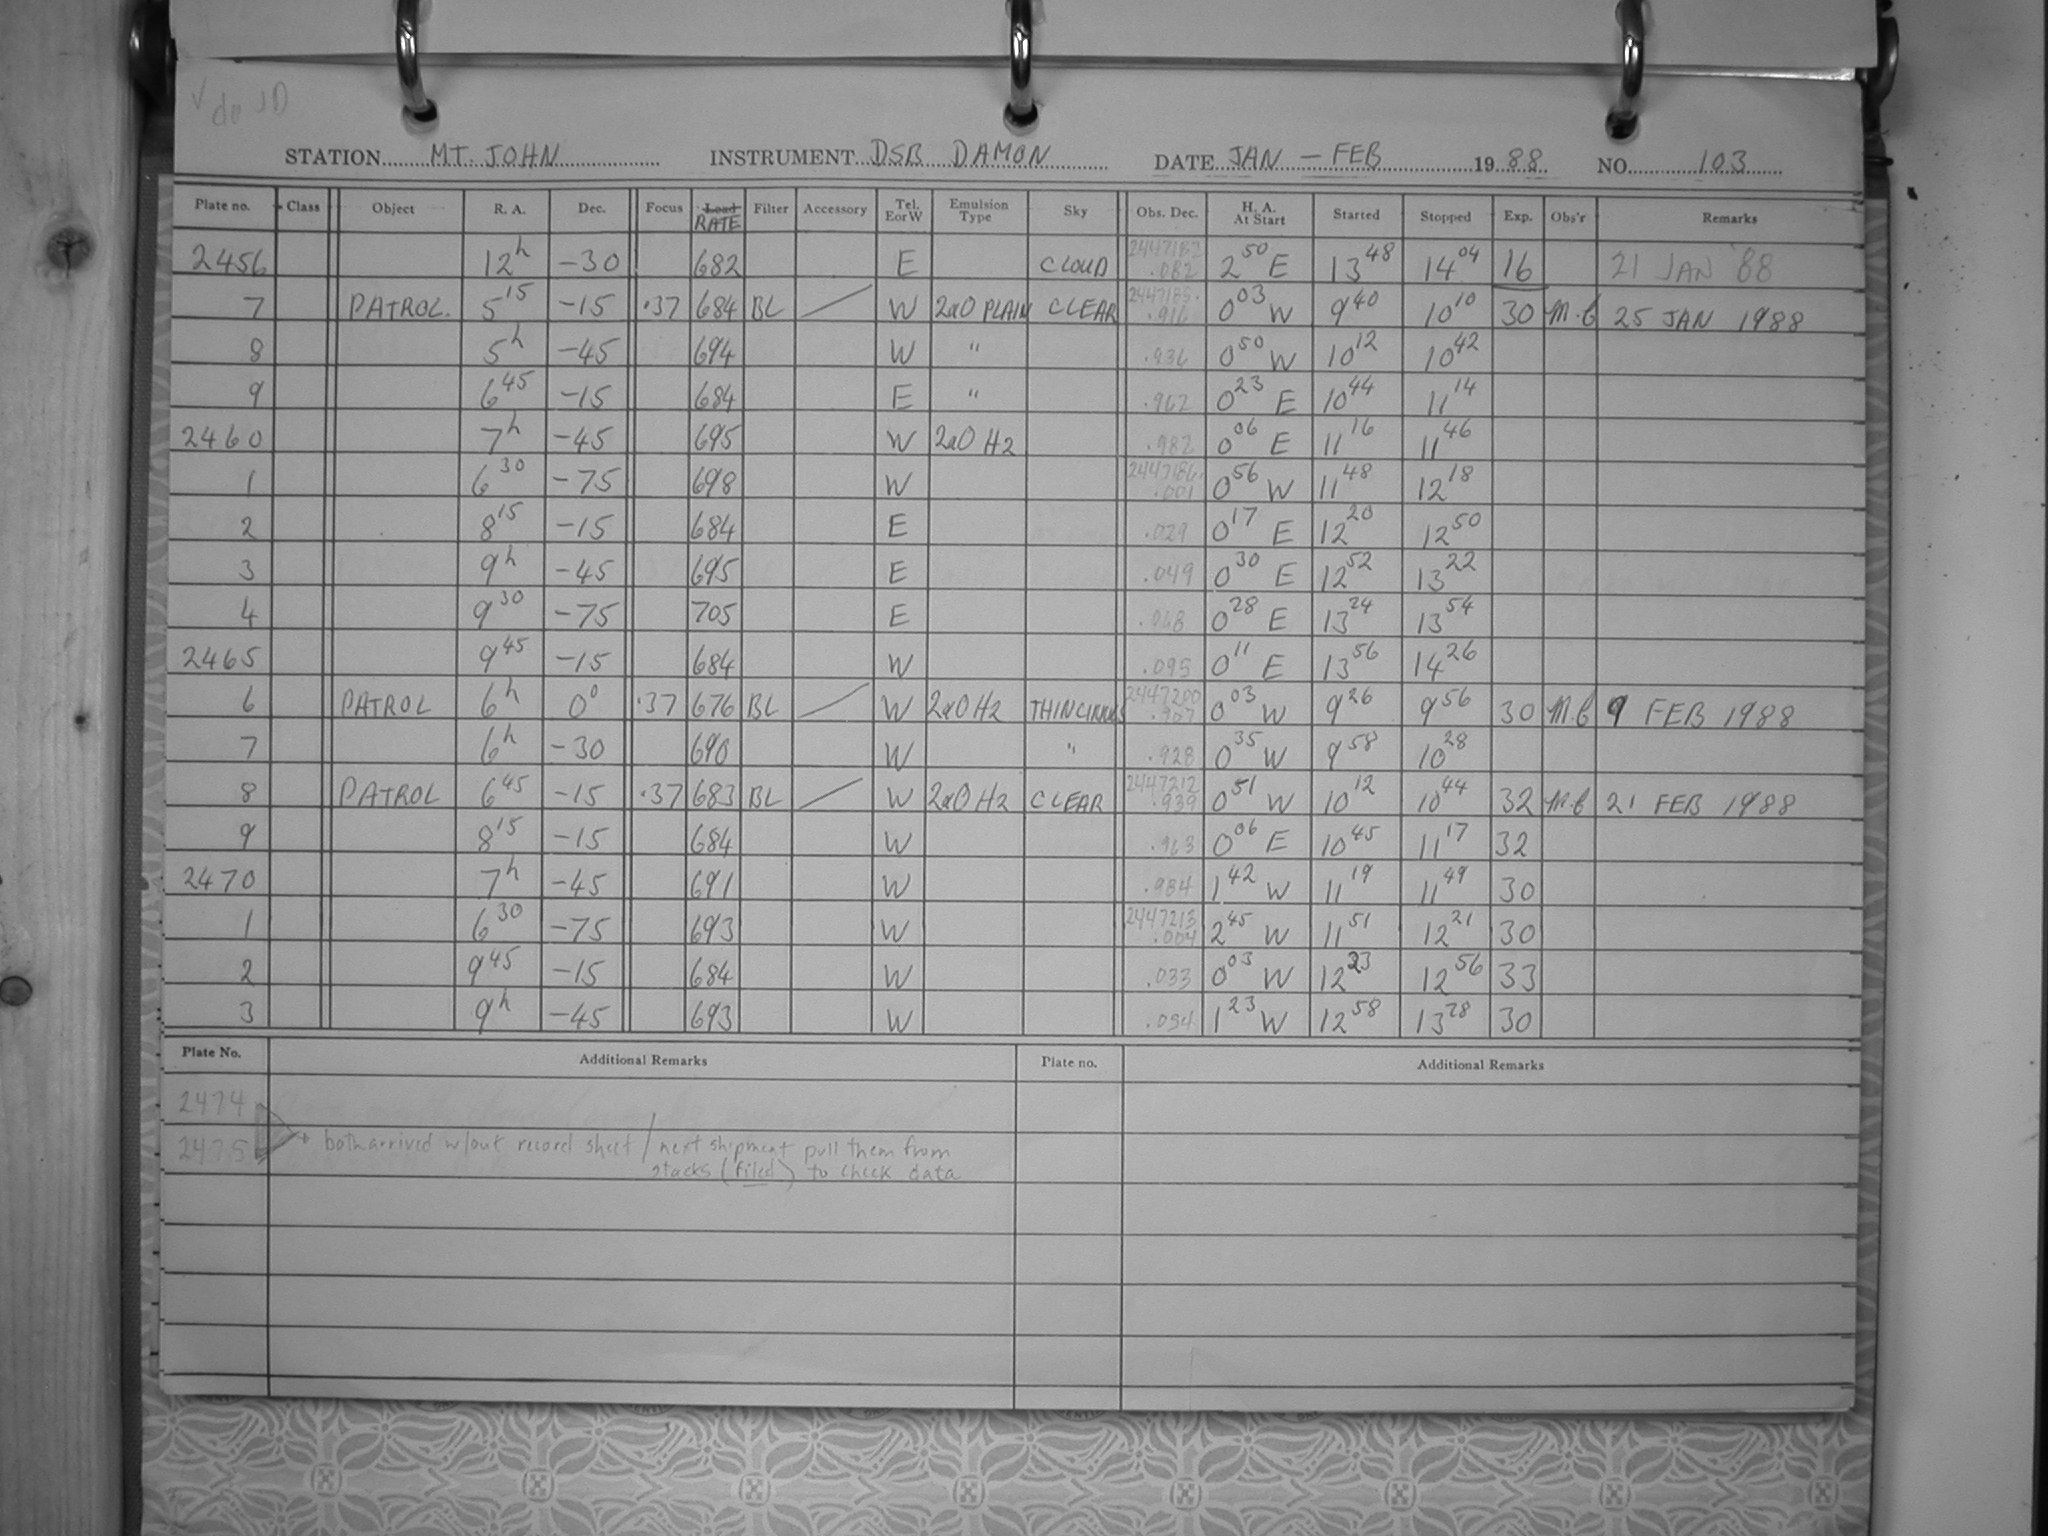 √ do JD
STATION MT. JOHN INSTRUMENT DSB DAMON DATE JAN - FEB 1988 NO. 103
Plate no. Class Object R. A. Dec. Focus Load RATE Filter Accessory Tel. E or W Emulsion Type Sky Obs. Dec. H. A. At Start Started Stopped Exp. Obs'r Remarks
2456 12h -30 682 E CLOUD 2447182 .082 2 50 E 13 48 14 04 16 21 JAN '88
7 PATROL. 5 15 -15 .37 684 BL / W 2aO PLAIN CLEAR 2447185. .916 0 03 W 9 40 10 10 30 M.C 25 JAN 1988
8 5h -45 694 W " .936 0 50 W 10 12 10 42
9 6 45 -15 684 E " .962 0 23 E 10 44 11 14
2460 7h -45 695 W 2aO H2 .982 0 06 E 11 16 11 46
1 6 30 -75 698 W 2447186. .001 0 56 W 11 48 12 18
2 8 15 -15 684 E .029 0 17 E 12 20 12 50
3 9h -45 695 E .049 0 30 E 12 52 13 22
4 9 30 -75 705 E .068 0 28 E 13 24 13 54
2465 9 45 -15 684 W .095 0 11 E 13 56 14 26
6 PATROL 6h 0° .37 676 BL / W 2aO H2 THIN CIRRUS 2447200 .907 0 03 W 9 26 9 56 30 M.C 9 FEB 1988
7 6h -30 690 W " .928 0 35 W 9 58 10 28
8 PATROL 6 45 -15 .37 683 BL / W 2aO H2 CLEAR 2447212 .939 0 51 W 10 12 10 44 32 M.C 21 FEB 1988
9 8 15 -15 684 W .963 0 06 E 10 45 11 17 32
2470 7h -45 691 W .984 1 42 W 11 19 11 49 30
1 6 30 -75 693 W 2447213 .004 2 45 W 11 51 12 21 30
2 9 45 -15 684 W .033 0 03 W 12 23 12 56 33
3 9h -45 693 W .054 1 23 W 12 58 13 28 30
Plate No. Additional Remarks Plate no. Additional Remarks
2474
2475 both arrived w/out record sheet / next shipment pull them from
stacks (filed) to check data